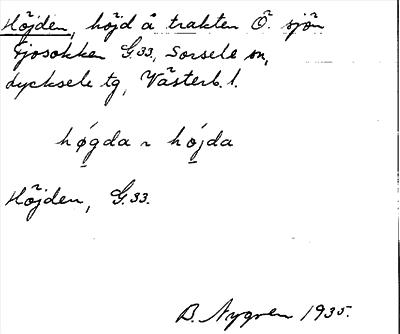 Höjden, höjd å trakten Ö. sjön
Tjosokken G.33, Sorsele sn,
Lycksele tg, Västerb. l.
høgda ~ højda
Höjden, G.33.
B. Nygren 1935.